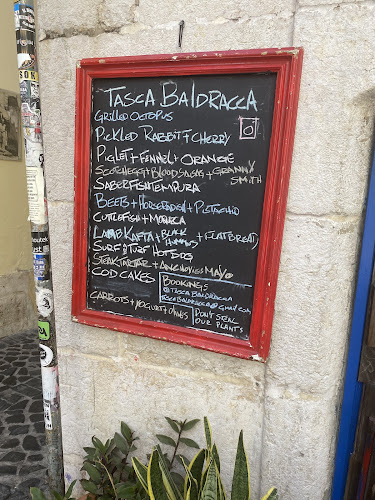 TASCA BALDRACCA
GRILLED OCTOPUS
PICKLED RABBIT & CHERRY
PIGLET + FENNEL + ORANGE
SCOTCH EGG + BLOOD SAUSAGE + GRANNY SMITH
SABERFISH TEMPURA
BEETS + HORSERADISH + PISTACHIO
CUTTLEFISH + MANTECA
LAMB KAFTA + BLACK HUMMUS + FLATBREAD
SURF & TURF HOT DOG
STEAK TARTAR + ANCHOVIES MAYO
COD CAKES
CARROTS + YOGURT + DATES
BOOKINGS
@TASCABALDRACCA
TASCABALDRACCA@GMAIL.COM
DONT STEAL
OUR PLANTS